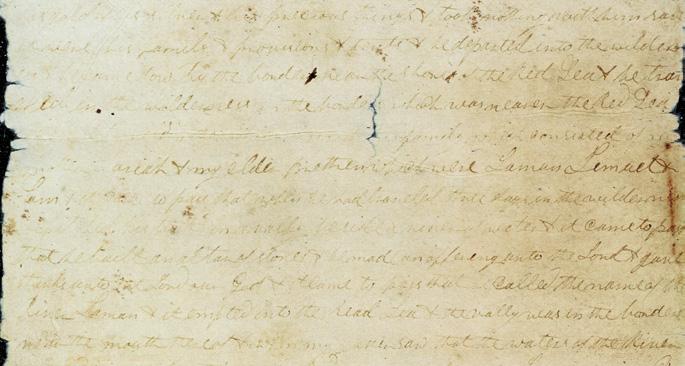 his gold & his silver & his precious things & took nothing with him save
it were his family & provisions & tents & he departed into the wilderne
ss & he came down by the borders near the shore of the Red Sea & he trav
eled in the wilderness in the borders which was nearer the Red Sea
family which consisted of
ariah & my elder brothers which were Laman Lemuel &
Sam & it came to pass that when he had traveled three days in the wilderness
he pitched his tent in a valley beside a river of water & it came to pass
that he built an altar of stones & he mad an offering unto the Lord & gave
thanks unto the Lord our God & it came to pass that he called the name of the
River Laman & it emptied into the Read Sea & the vally was in the borders
near the mouth thereof & when my father saw that the waters of the River